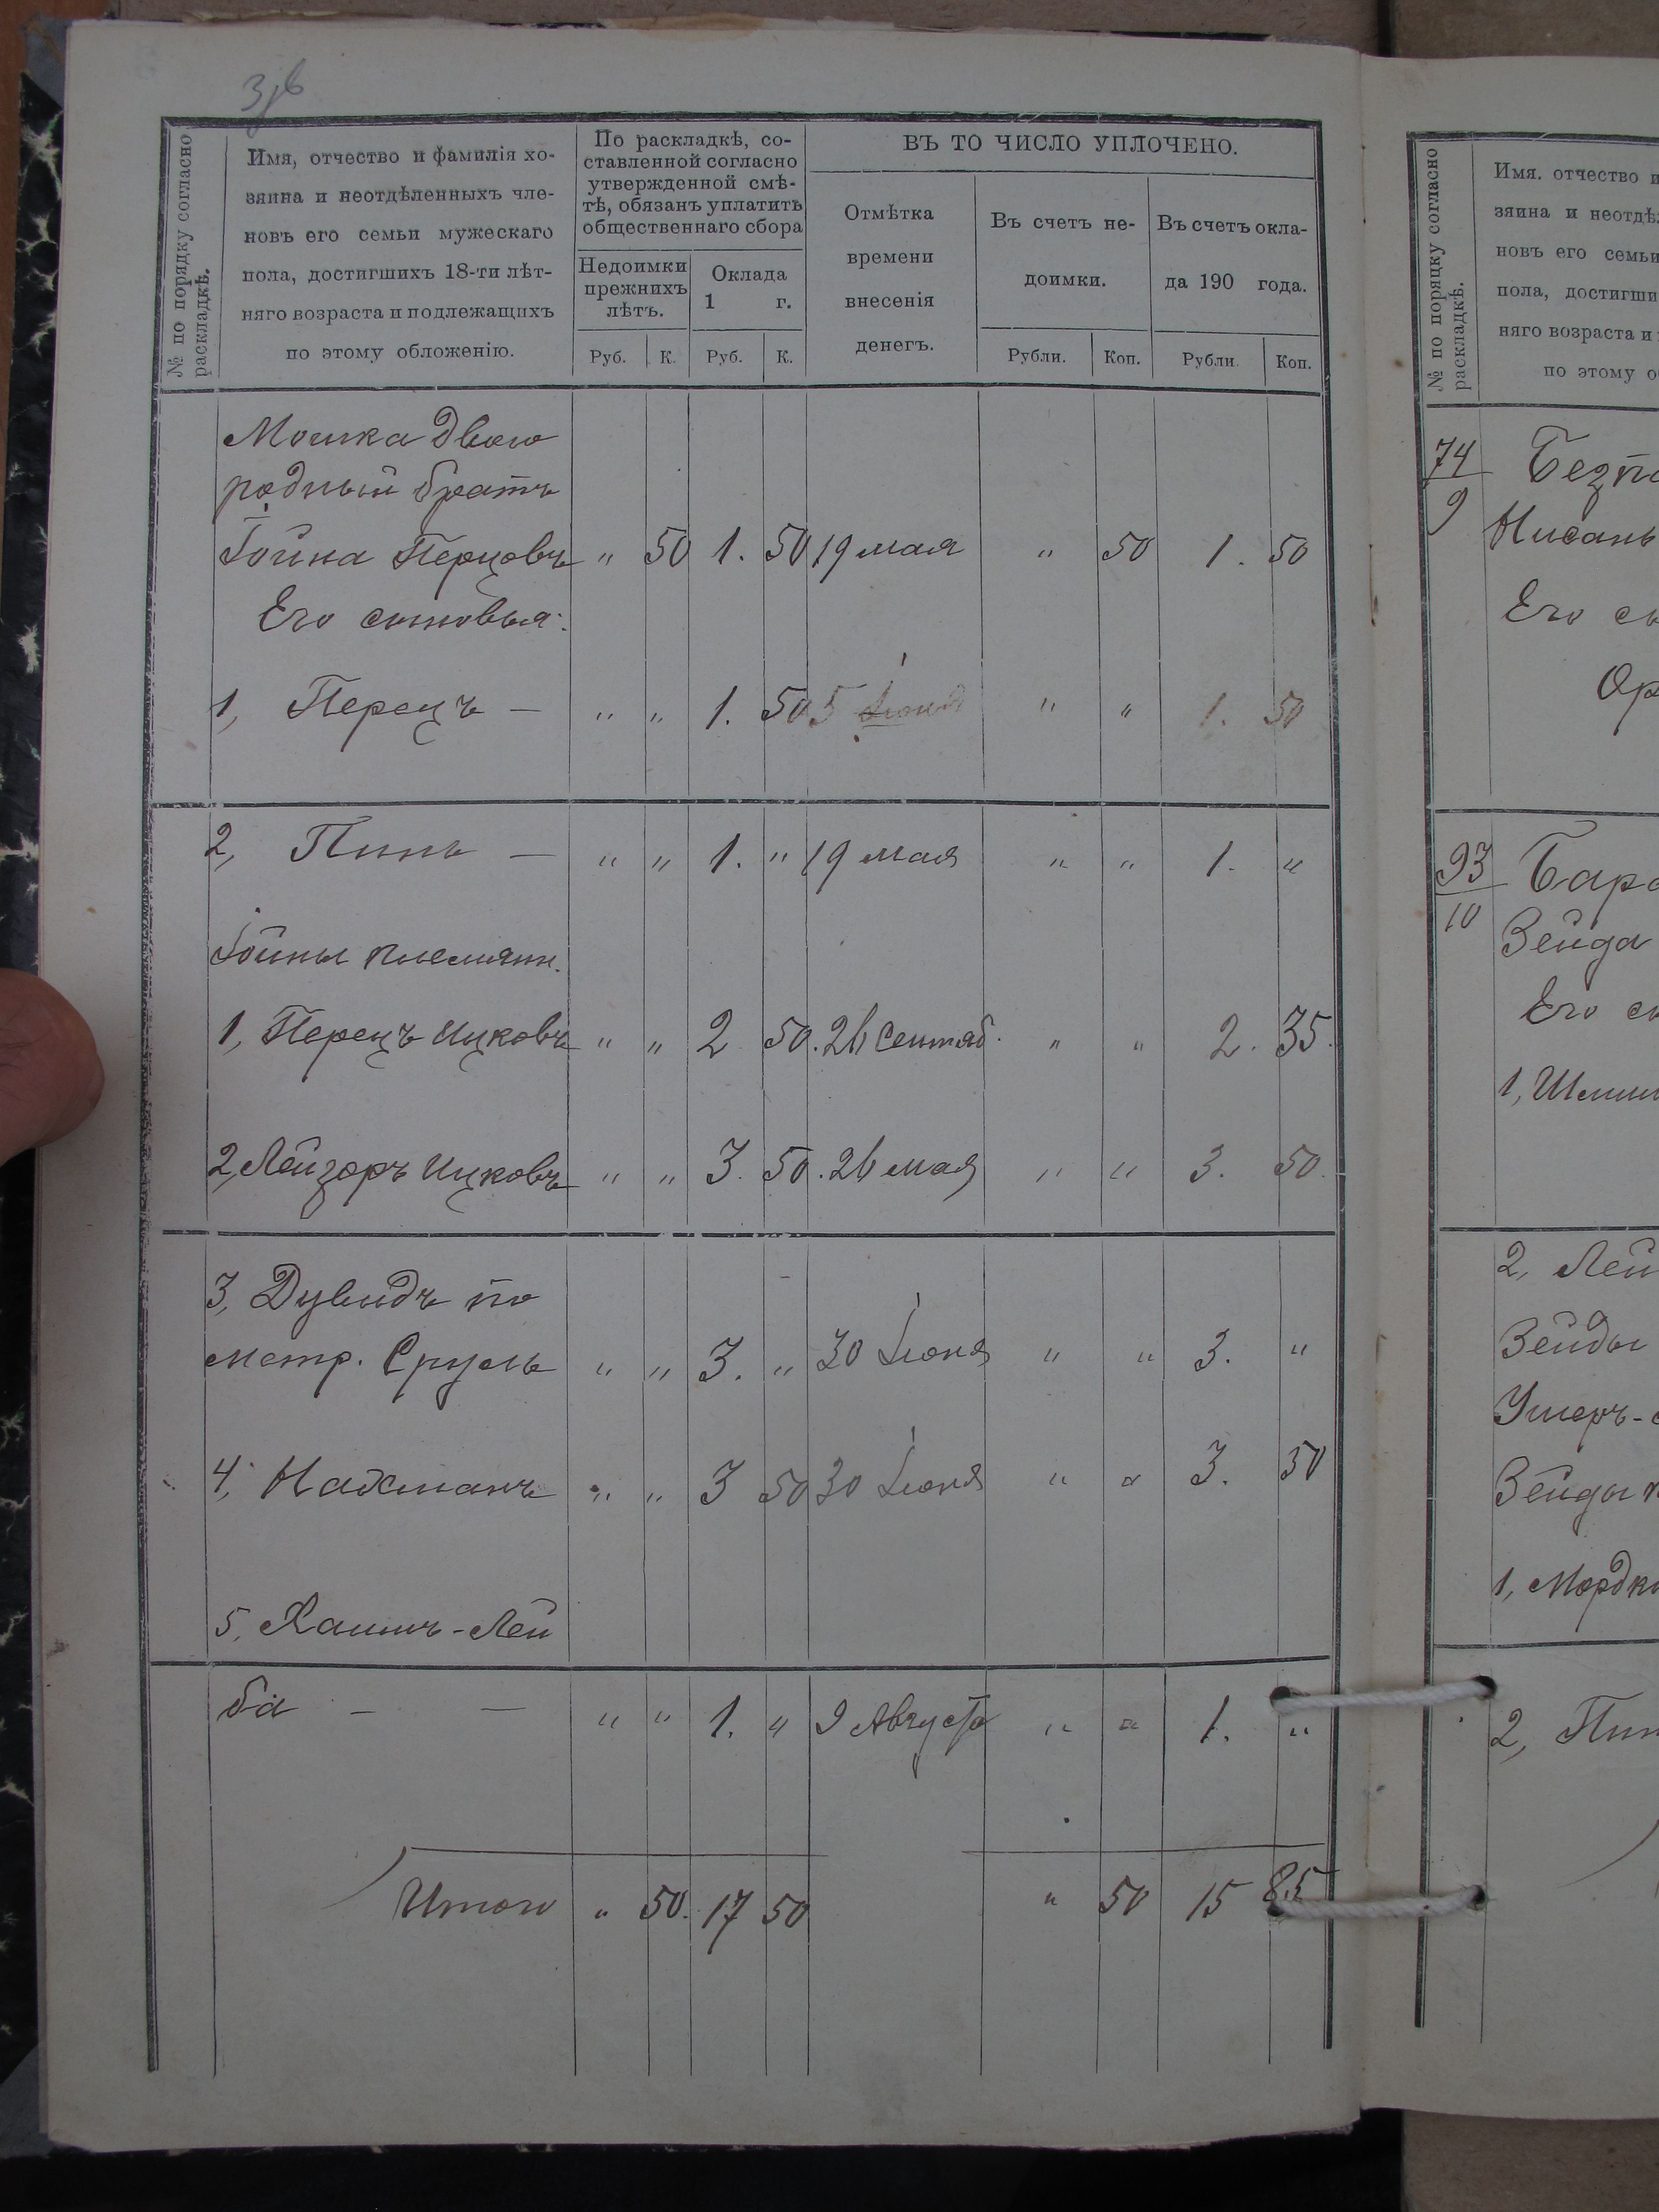 3 об
№ по порядку согласно раскладкѣ.
Имя, отчество и фамилія хо-
зяина и неотдѣленныхъ чле-
новъ его семьи мужескаго
пола, достигшихъ 18-ти лѣт-
няго возраста и подлежащихъ
по этому обложенію.
По раскладкѣ, со-
ставленной согласно
утвержденной смѣ-
тѣ, обязанъ уплатить
общественнаго сбора
Недоимки
прежнихъ
лѣтъ.
Оклада
1 г.
Руб. К. Руб. К.
ВЪ ТО ЧИСЛО УПЛОЧЕНО.
Отмѣтка
времени
внесенія
денегъ.
Въ счетъ не-
доимки.
Въ счетъ окла-
да 190 года.
Рубли. Коп. Рубли. Коп.
Мошка двою
родный братъ
Іойна Перцовъ " 50 1. 50 19 мая " 50 1. 50
Его сыновья:
1, Перецъ — " " 1. 50 5 Іюня " " 1. 50
2, Пинь — " " 1. " 19 мая " " 1. "
Іойны племянн.
1, Перецъ Ицковъ " " 2 50. 26 Сентяб. " " 2. 35.
2, Лейзоръ Ицковъ " " 3. 50. 26 мая " " 3. 50.
3, Дувидъ по
метр. Сруль " " 3. " 30 Іюня " " 3. "
4, Нахманъ " " 3 50 30 Іюня " " 3. 50
5, Хаимъ-Лей
ба — — " " 1. " 9 Августа " " 1. "
Итого " 50. 17 50 " 50 15 85
№ по порядку согласно раскладкѣ.
Имя. отчество и
зяина и неотдѣ
новъ его семьи
пола, достигши
няго возраста и
по этому о
74
9
Безпа
Нисань
Его сы
Ор
93
10
Бара
Зейда
Его сы
1, Шлим
2, Лей
Зейды
Умеръ-
Зейды
1, Мордк
2, Пин